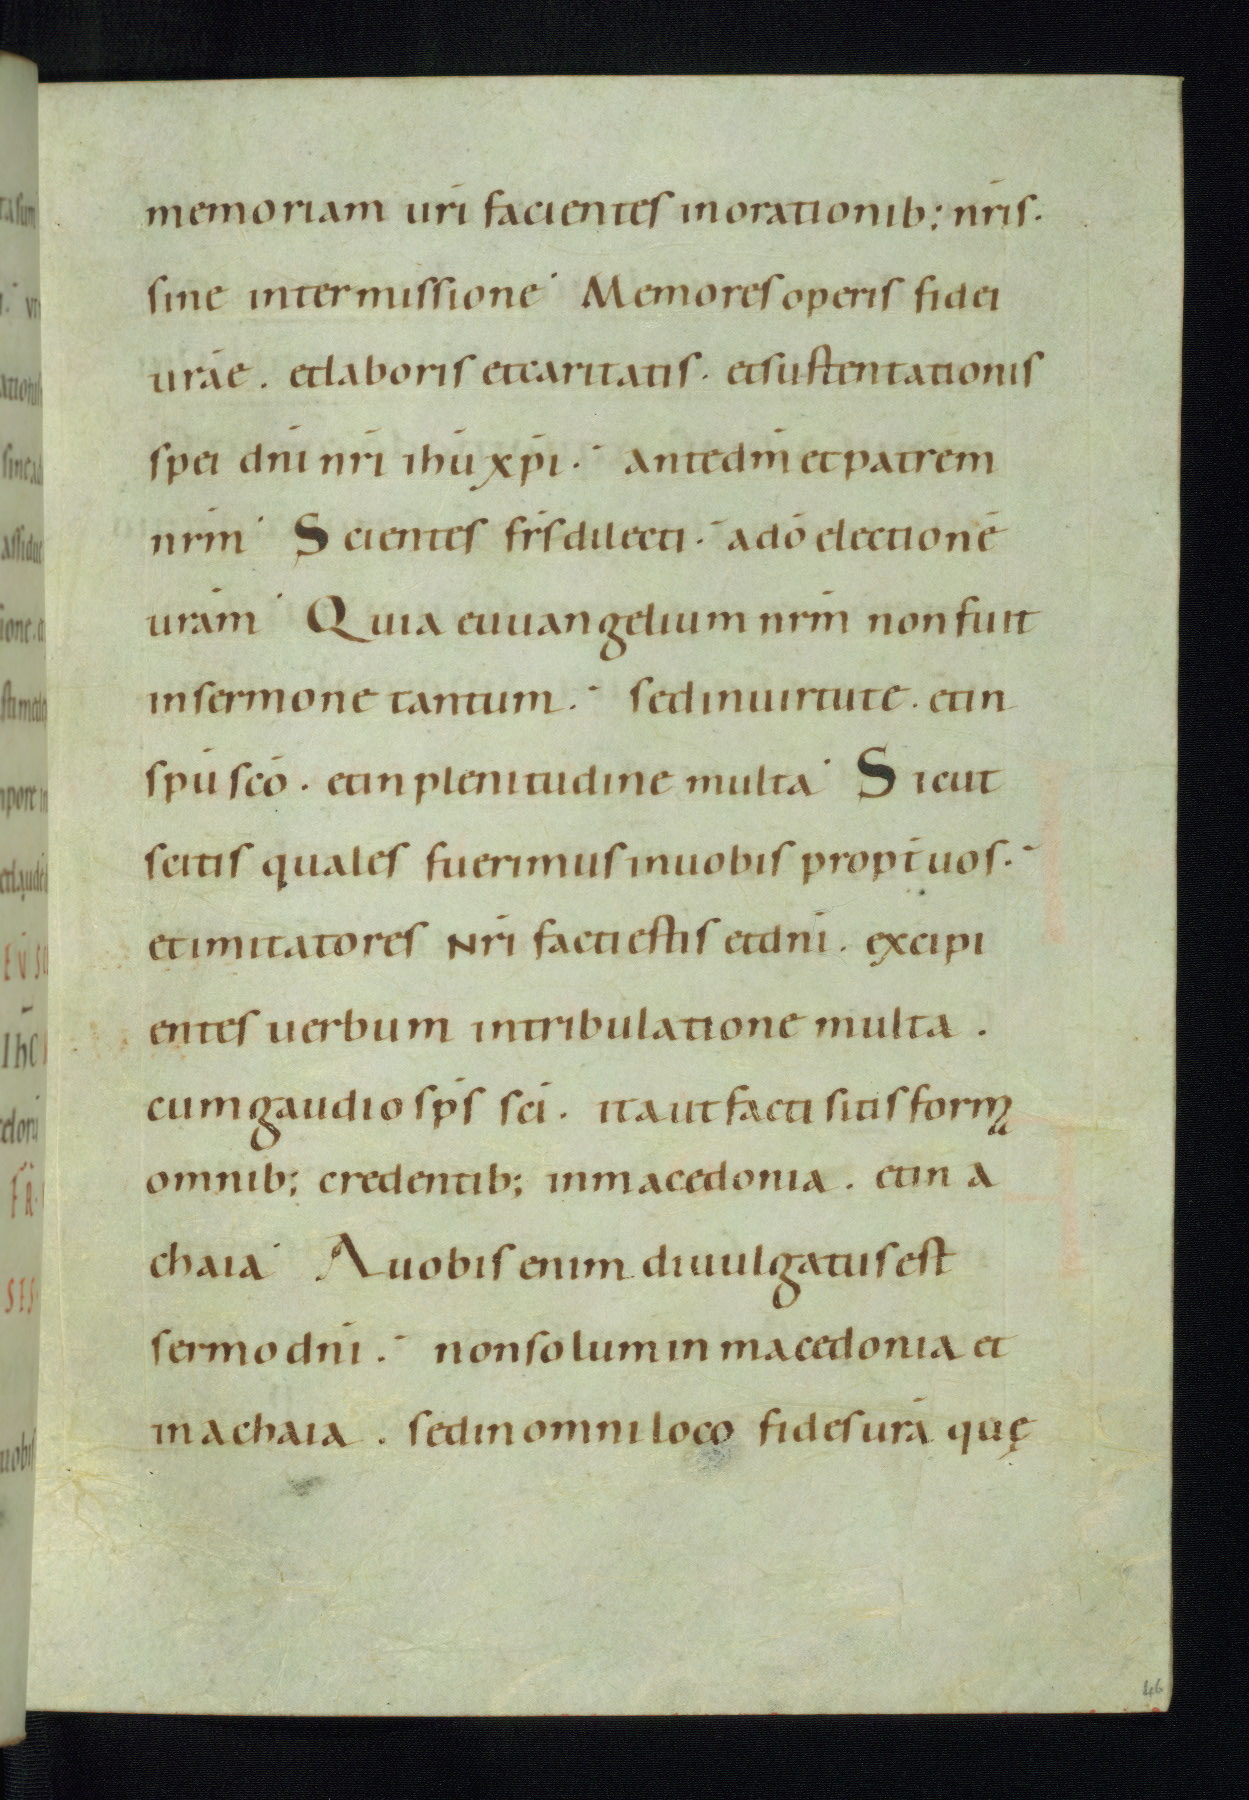 memoriam uri̅ facientes inorationib; nri̅s.
sine intermissione· Memores operis fidei
ura̅e. etlaboris etcaritatis. etsustentationis
spei dni̅ nri̅ ihu̅ xpi̅. antedm̅ etpatrem
nrm̅· Scientes frs̅ dilecti. ado̅ electione̅
uram̅· Quia euuangelium nrm̅ non fuit
insermone tantum. sedinuirtute. etin
spu̅ sco̅. etinplenitudine multa· Sicut
scitis quales fuerimus inuobis propt̅ uos.
etimitatores Nri̅ facti estis etdni̅. excipi
entes uerbum intribulatione multa.
cumgaudio sps̅ sci̅. itaut facti sitis form̨
omnib; credentib; inmacedonia. etin a
chaia· Auobis enim diuulgatus est
sermo dni̅. nonsolum in macedonia et
in achaia. sedinomni loco fides ura̅ quę
46